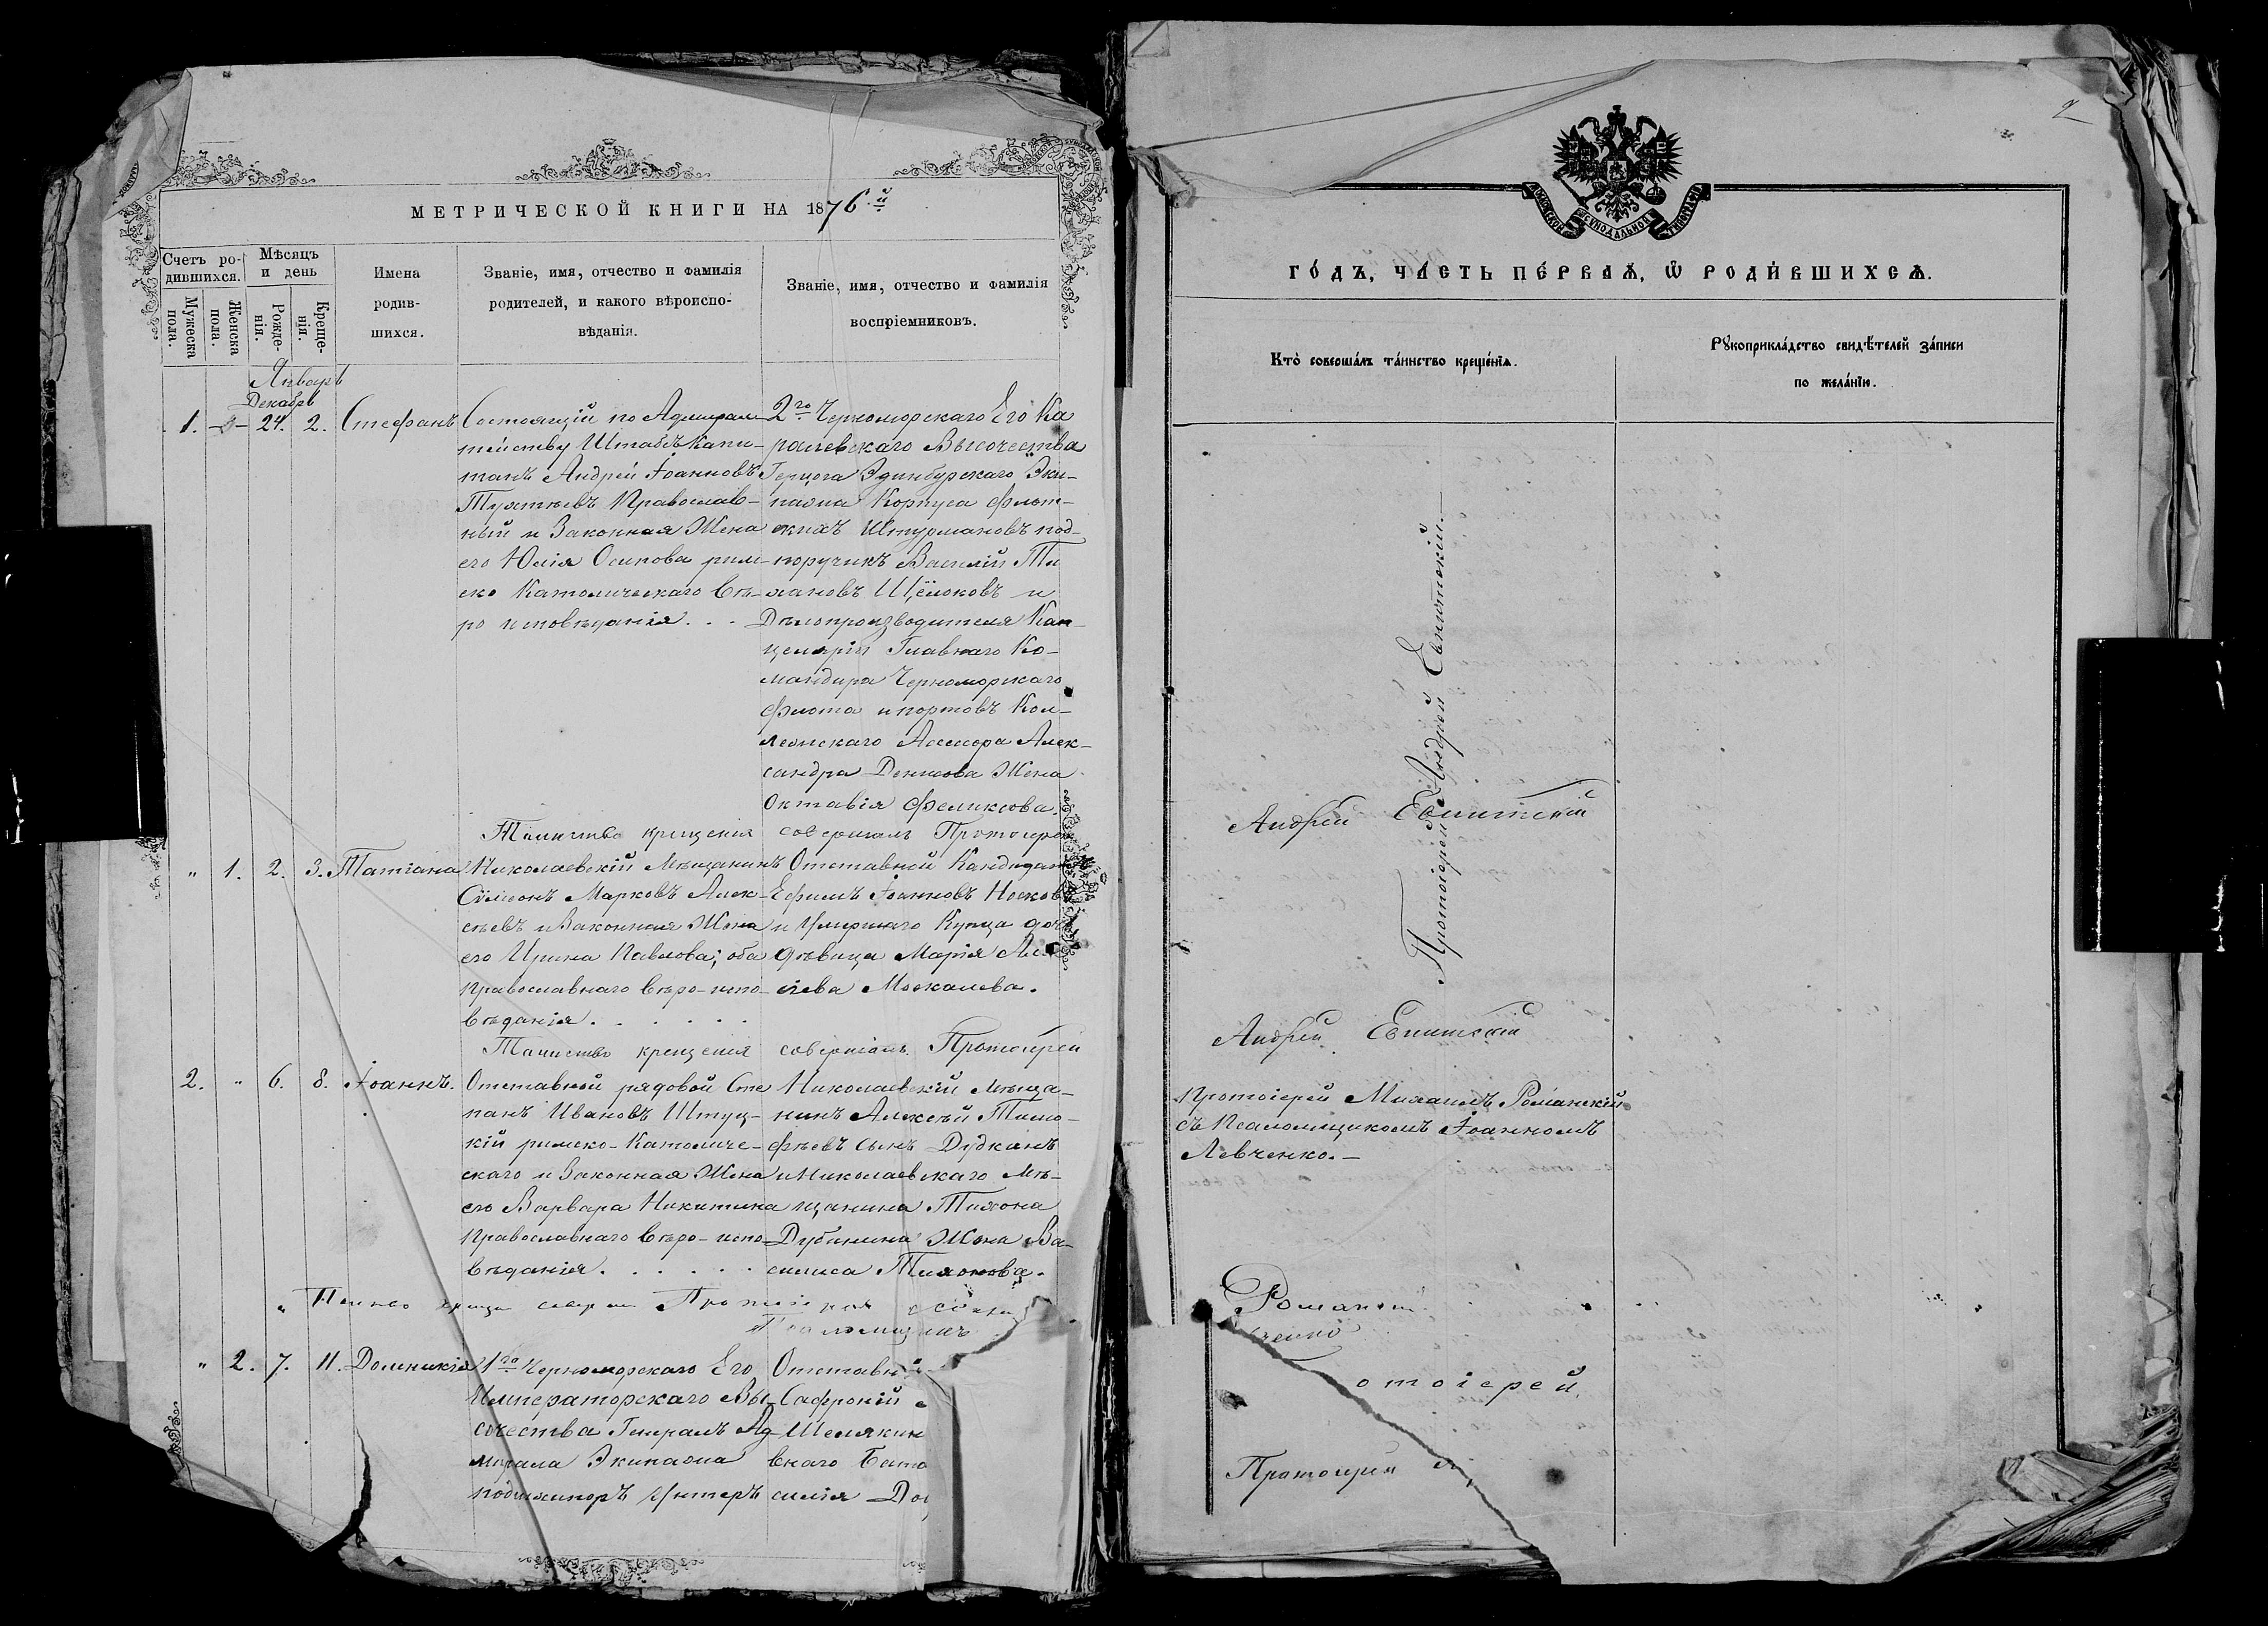 МЕТРИЧЕСКОЙ КНИГИ НА 1876.й
Счетъ ро-
дившихся.
Мѣсяцъ
и день
Мужеска
пола.
Женска
пола.
Рожде-
нія.
Креще-
нія.
Имена
родив-
шихся.
Званіе, имя, отчество и фамилія
родителей, и какого вѣроиспо-
вѣданія.
Званіе, имя, отчество и фамилія
воспріемниковъ.
Январь
Декабрь
1. 24. 2. Стефанъ
Состоящій по Адмирал-
тейству Штабсъ Капи-
танъ Андрей Іоанновъ
Православ-
ный и Законная Жена
его Юлія Осипова рим-
ско Католическаго вѣ-
ро исповѣданія...
2го Черноморскаго Его Ка
ралевскаго Высочества
Герцога Эдинбурскаго Эки-
пажа Корпуса флот-
скихъ Штурмановъ под-
поручикъ Василій Ти
хановъ Щёлоковъ и
Дѣлопроизводителя Кан-
целяріи Главнаго Ко-
мандира Черноморскаго
флота и портовъ Кол-
лежскаго Ассесора Алек-
сандра Денисова Жена
Октавія Феликсова.
Таинство крещенія совершалъ Протоіерей
" 1. 2. 3. Татіана
Николаевскій Мѣщанинъ
Сѵмеонъ Марковъ Алек-
сѣевъ и Законная Жена
его Ирина Павлова; оба
православнаго вѣро-испо-
вѣданія......
Отставной Кандидатъ
Ефимъ Іоанновъ Носковъ
и Умершаго Купца доч
дѣвица Марія
Москалева.
Таинство крещенія совершалъ Протоіерей
2. " 6. 8. Іоаннъ.
Отставной рядовой Сте
панъ Ивановъ Штуц-
кій римско-Католиче-
скаго и Законная Жена
его Варвара Никитина
православнаго вѣро-испо-
вѣданія......
Николаевскій мѣща-
нинъ Алексѣй Тимо-
фѣевъ сынъ Дудканъ
и Николаевскаго мѣ-
щанина Тихона
Дубинина Жена Ва-
силиса Тихонова.
" 2. 7. 11. Домникія
1го Черноморскаго Его
Императорскаго Вы-
сочества Генералъ Ад-
мирала Экипажа
подшкиперъ Унтеръ
Отставн
Сафроній
Шелякин
вскаго
силія
2
ГОДЪ, ЧАСТЬ ПЕРВАѦ, Ѿ РОДИВШИХСѦ.
Кто совершалъ таинство крещенїѧ.
Рꙋкоприкладство свидѣтелей записи
по желанїю.
Протоіерей Андрей Евнитскій.
Андрей Евнитскій
Андрей Евнитскій
Протоіерей Михаилъ Романскій
съ Псаломщикомъ Іоанномъ
Левченко.—
отоіерей
Протоіерей